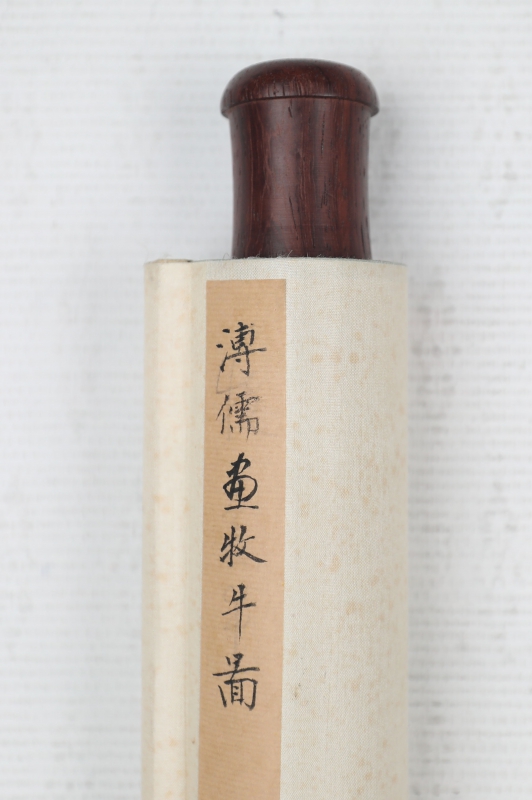 溥儒畫牧牛圖